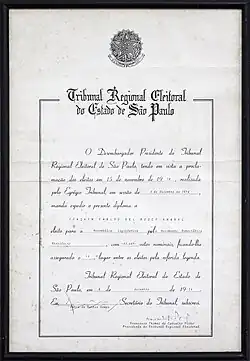 Tribunal Regional Eleitoral
do Estado de São Paulo
O Desembargador Presidente do Tribunal
Regional Eleitoral de São Paulo, tendo em vista a procla-
mação dos eleitos em 15 de novembro de 19 , realizada
pelo Egrégio Tribunal, em sessão de
manda expedir o presente diploma a
eleito para a Assembléia Legislativa pelo Movimento Democrático
Brasileiro , com votos nominais, ficando-lhe
assegurado o lugar entre os eleitos pela referida legenda.
Tribunal Regional Eleitoral do Estado de
São Paulo, em de de 19
Eu, Secretário do Tribunal, subscrevi.
Presidente do Tribunal Regional Eleitoral